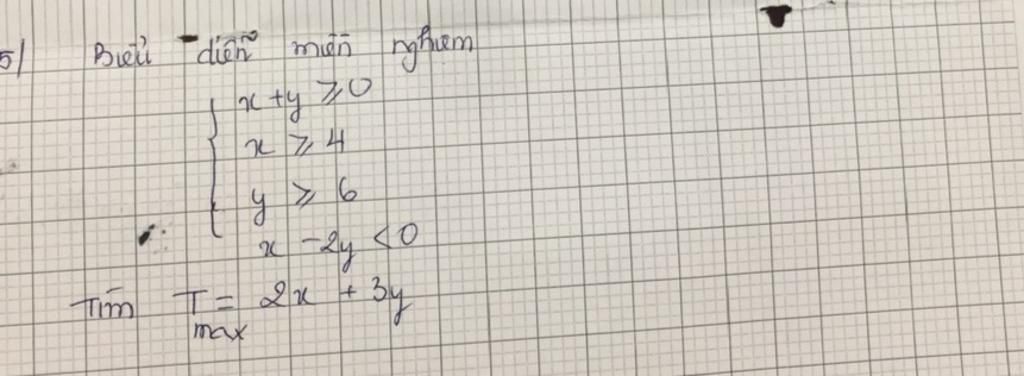 5/ Biểu diễn miền nghiệm
x + y ⩾ 0
x ⩾ 4
y ⩾ 6
x - 2y < 0
Tìm T = 2x + 3y
max